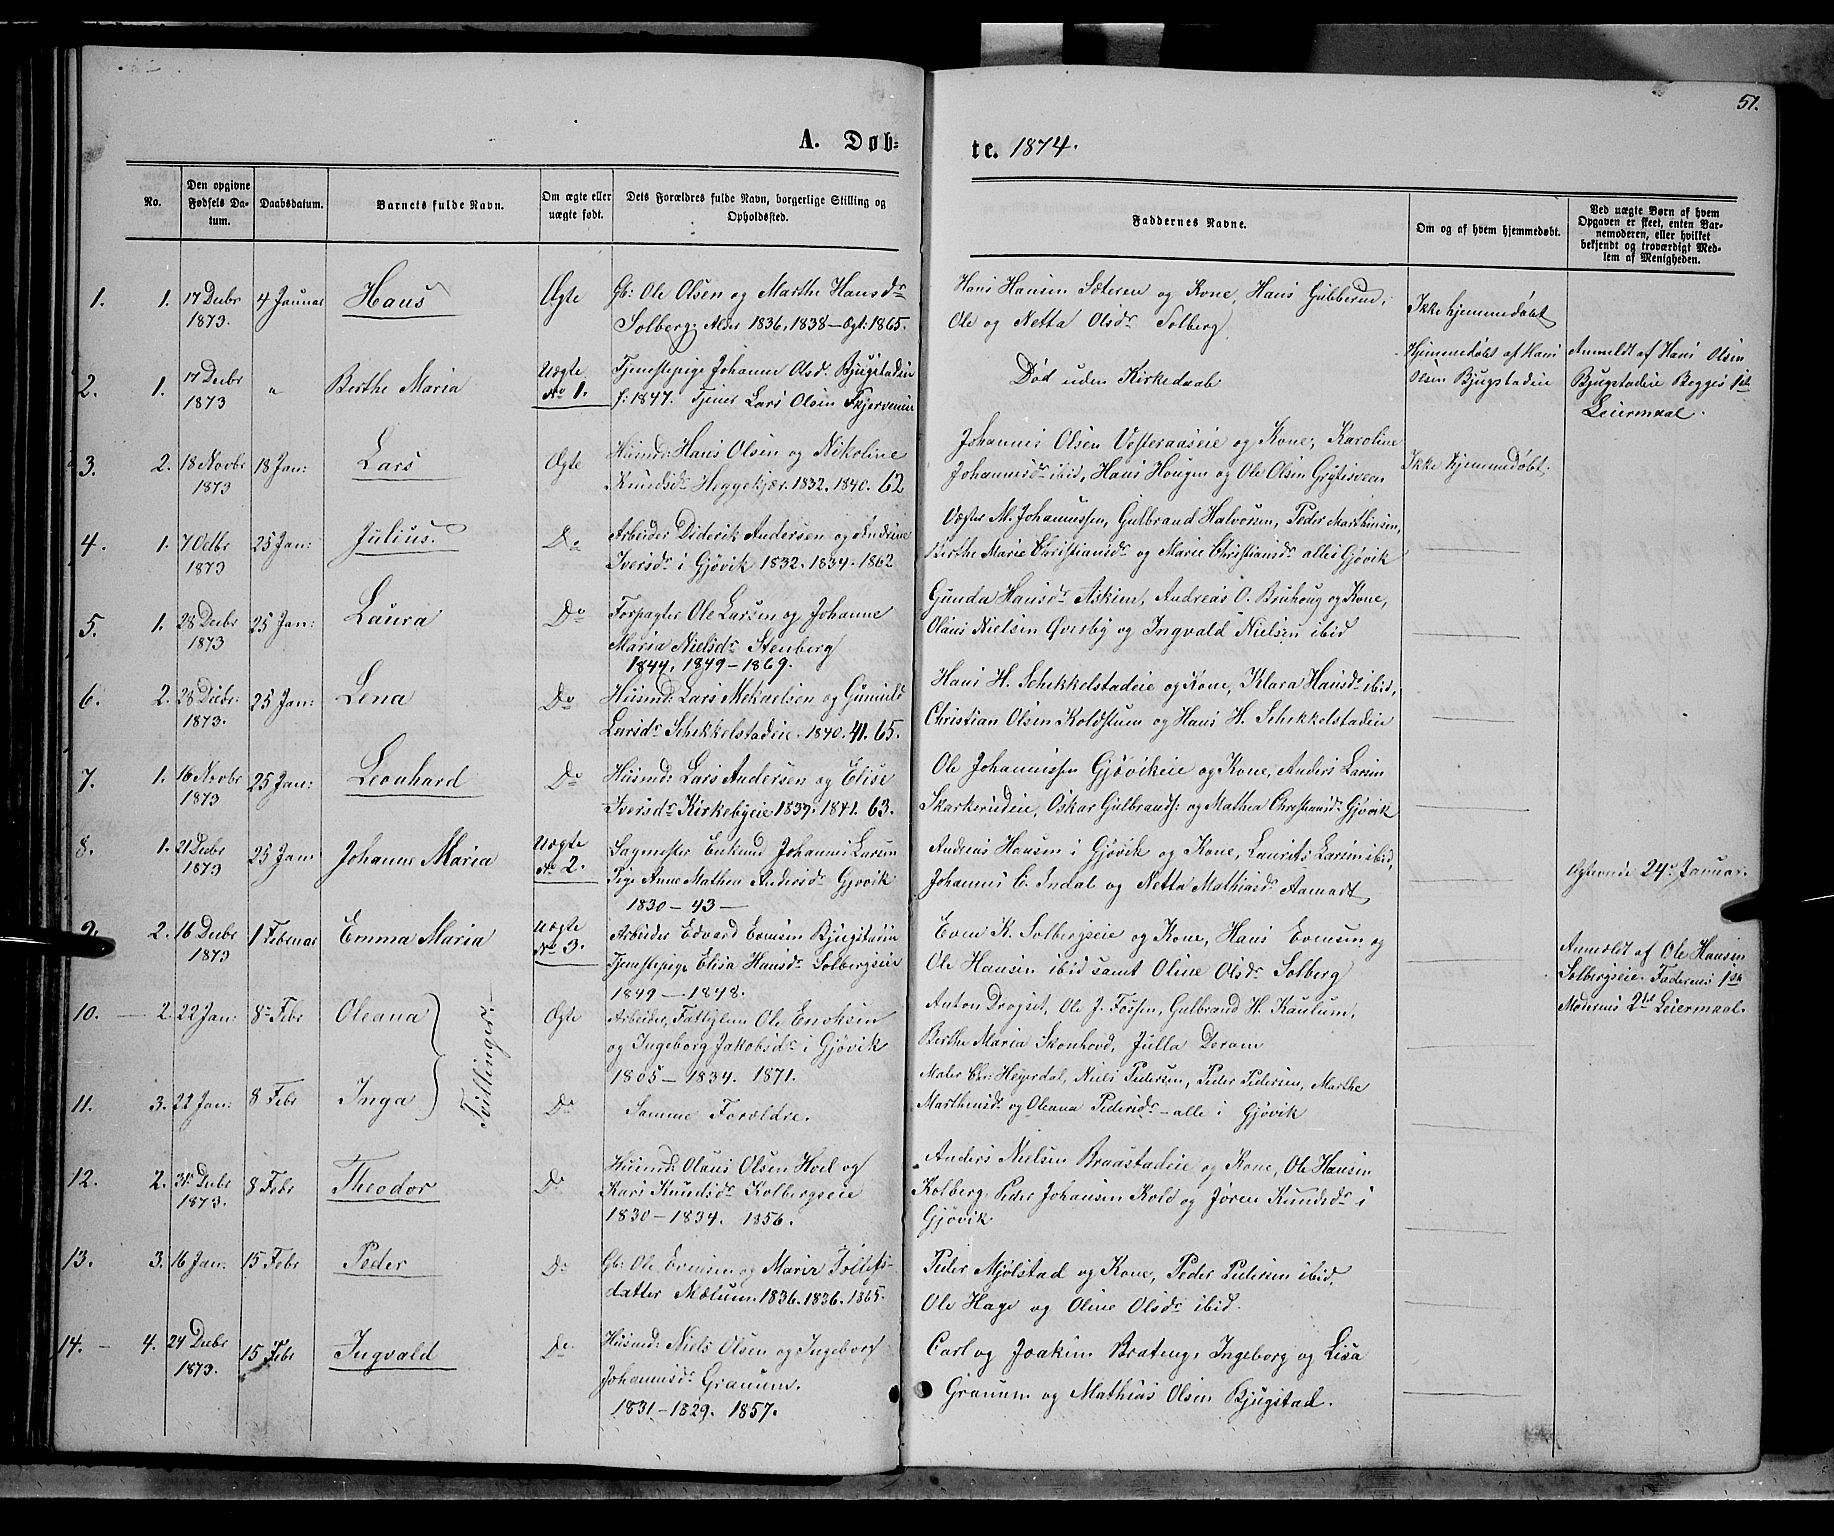 51.
A. Døb-
te. 1874.
No.
Den opgivne Fødsels Da-
tum.
Daabsdatum.
Barnets fulde Navn.
Om ægte eller uægte født.
Dets Forældres fulde Navn, borgerlige Stilling og
Opholdssted.
Faddernes Navne.
Om og af hvem hjemmedøbt.
Ved uægte Børn af hvem
Opgaven er skeet, enten Bar-
nemoderen, eller hvilket
bekjendt og troværdigt Med-
lem af Menigheden.
1. 1. 17 Decbr 4 Januar Hans Ægte Gb: Ole Olsen og Marthe Hansdr
1873. Solberg. Alder 1836, 1838 — Ægt: 1865.
Hans Hansen Sæteren og Kone, Hans Gubberud,
Ole og Netta Olsdr Solberg
Ikke hjemmedøbt
2. 1. 17 Decbr " Berthe Maria Uægte Tjenestepige Johanne Olsdr Bjugstadeie
1873 No 1. f: 1847. Tjener Lars Olsen Skjerveneie
Død uden Kirkedaab
Hjemmedøbt af Hans
Olsen Bjugstadeie
Anmeldt af Hans Olsen
Bjugstadeie Begges 1ste
Leiermaal.
3. 2. 18 Novbr 18 Jan: Lars Ægte Husmd: Hans Olsen og Nikoline
1873 Knudsdr Heggekjær. 1832. 1840. 62
Johannes Olsen Vesteraaseie og Kone, Karoline
Johannesdr ibid, Hans Hougen og Ole Olsen Grytisveen
Ikke hjemmedøbt.
4. 1. 7 Octbr 25 Jan: Julius. Do Arbeider Diderik Andersen og Andrine
1873 Iversdr i Gjøvik 1832. 1834. 1862
Vægter M. Johannessen, Gulbrand Halvorsen, Peder Marthinsen,
Berthe Marie Christiansdr og Marie Christiansdr alle i Gjøvik
5. 1. 28 Decbr 25 Jan: Laura Do Forpagter Ole Larsen og Johanne
1873 Maria Nielsdr Stenberg
1844, 1849 — 1869.
Gunda Hansdr Askim, Andreas O. Bruhoug og Kone,
Olaus Nielsen Øvesby og Ingvald Nielsen ibid
6. 2. 28 Decbr. 25 Jan: Lena Do Husmd: Lars Mekaelsen og Gunild
1873. Larsdr Schikkelstadeie. 1840. 41. 65.
Hans H. Schikkelstadeie og Kone, Klara Hansdr ibid,
Christian Olsen Koldstum og Hans H. Schikkelstadeie
7. 1. 16 Novbr 25 Jan: Leonhard Do Husmd: Lars Andersen og Elise
1873 Iversdr Kirkebyeie 1839. 1841. 63.
Ole Johannessen Gjøvikeie og Kone, Anders Larsen
Skarkerudeie, Oskar Gulbrands: og Mathea Christiansdr Gjøvik
8. 1. 21 Decbr 25 Jan: Johanne Maria Uægte Sagmester Enkemd Johannes Larsen
1873 No 2. Pige Anne Mathea Andersdr Gjøvik
1830 — 43 —
Andreas Hansen i Gjøvik og Kone, Laurits Larsen ibid,
Johannes E. Indal og Netta Mathiasdr Aamodt
Ægteviede 24de Januar.
9. 2. 16 Decbr 1 Februar Emma Maria Uægte Arbeider Edvard Evensen Bjugstadeie
1873 No 3. Tjenestepige Elisa Hansdr Solbergseie
1849 — 1848.
Even K. Solbergseie og Kone, Hans Evensen og
Ole Hansen ibid samt Oline Olsdr Solberg
Anmeldt af Ole Hansen
Solbergseie. Faderens 1ste
Moderens 2det Leiermaal.
10. — 2. 22 Jan: 8de Febr Oleana Ægte Arbeider, Fattiglem Ole Enoksen
og Ingeborg Jakobsdr i Gjøvik
1805 — 1834. 1871.
Anton Drogset, Ole J. Fossen, Gulbrand H. Kaulum,
Berthe Maria Skonhovd, Julla Deram
Tvillinger.
11. 3. 22 Jan: 8 Febr Inga Do Samme Forældre.
Maler Chr: Heyerdal, Niels Pedersen, Peder Pedersen, Marthe
Marthinsdr og Oleana Pedersdr — alle i Gjøvik
12. 2. 31 Decbr 8 Febr Theodor Do Husmd: Olaus Olsen Hvel og
1873. Kari Knudsdr Kolbergseie
1830 — 1834. 1856.
Anders Nielsen Braastadeie og Kone, Ole Hansen
Kolberg, Peder Johansen Kold og Jøren Knudsdr i
Gjøvik
13. 3. 16 Jan: 15 Febr Peder Do Gb: Ole Evensen og Marie Tollefs-
datter Mælum. 1836. 1836. 1865.
Peder Mjølstad og Kone, Peder Pedersen ibid,
Ole Hage og Oline Olsdr ibid.
14. — 4. 24 Decbr 15 Febr Ingvald Do Husmd: Niels Olsen og Ingeborg
1873. Johannesdr Granum.
1831 — 1829. 1857.
Carl og Joakim Brateng, Ingeborg og Lisa
Granum og Mathias Olsen Bjugstad.